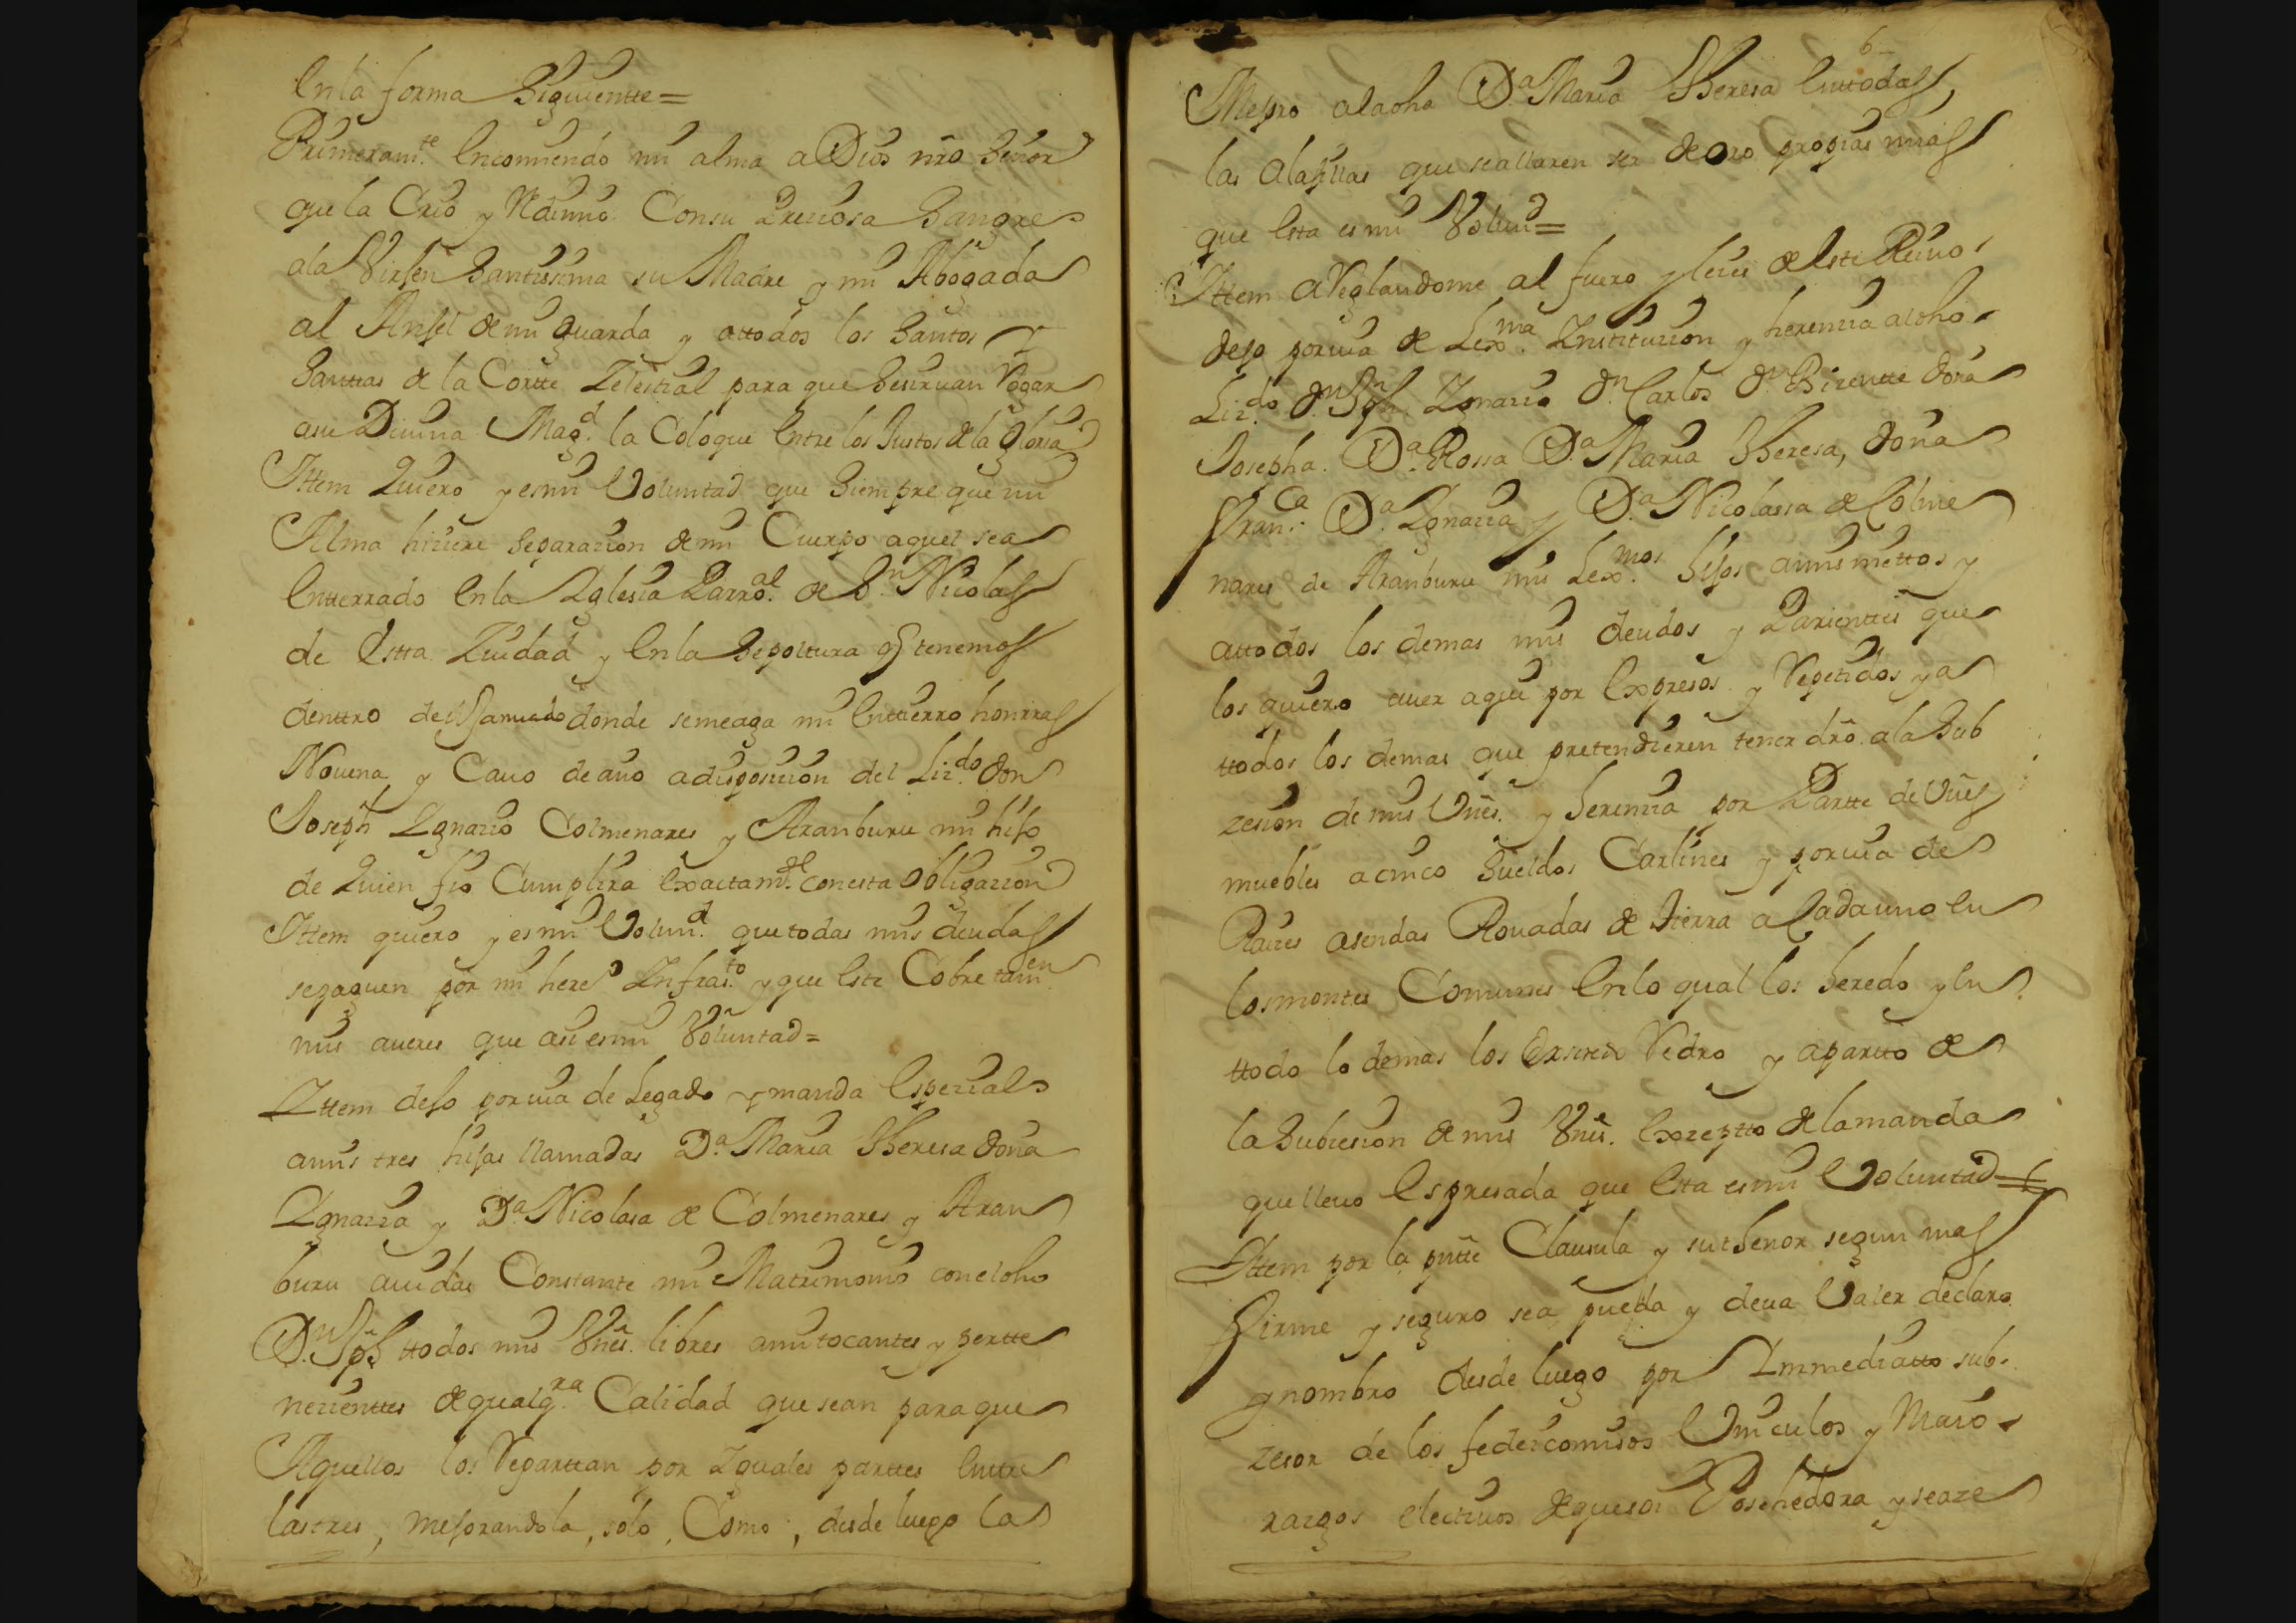 En la forma Siguiente=
Primeram.te Encomiendo mi alma a Dios nrō Señor
que la Crio y Redimio Consu Preziosa Sangre
ala Virjen Santissima su Madre y mi Abogada
al Anjel de mi Guarda y attodos los Santos y
Santtas de la Cortte Zelestial para que Sesirvan Rogar
asu Divina Mag.d la Coloque Entre los Justos dela Gloria
Ittem Quiero y esmi Voluntad que Siempre que mi
Alma hiziere Separazion de mi Cuerpo aquel sea
Entterrado Enla Yglesia Parro.al de S.n Nicolas
de Estta Ziudad y Enla Sepoltura q tenemos
denttro del donde semeaga mi Entierro honrras
Novena y Cavo de año adisposizion del Liz.do don
Joseph Ygnazio Colmenares y Aranburu mi hijo
de Quien fio Cumplira Exactam.te conesta Obligazion
Ittem quiero y esmi Volun.d que todas mis deudas
sepaguen por mi here.o Infras.to y que Este Cobre tam.en
mis averes que asi esmi Voluntad=
Ittem dejo porvia de Legado y manda Espezial
amis tres hijas llamadas D.a Maria Theresa Doña
Ygnazia y D.a Nicolasa de Colmenares y Aran
buru avidas Constante mi Matrimonio coneldho
D.n Jph ttodos mis Vnēs. libres ami tocantes y pertte
nezienttes de qualq.ra Calidad que sean para que
Aquellos los Reparttan por Yguales parttes Enttre
lastres, mejorandola, solo, Como, desde luego la
6
Mejoro aladha D.a Maria Theresa Enttodas
las Alajillas que seallaren ser de Oro propias mias
que Esta es mi Volun.d=
Ittem aReglandome al fuero y leies de Este Reino
dejo porvia de Lex.ma Instituzion y herenzia aldho
Liz.do D.n Jph. Ygnazio D.n Carlos D.n Bizentte Doña
Josepha. D.a Rossa D.a Maria Theresa, Doña
Fran.ca D.a Ygnazia y D.a Nicolassa de Colme
nares de Aranburu mis Lex.mos hijos amis niettos y
attodos los demas mis deudos y Parienttes que
los quiero aver aqui por Expresos y Repetidos y a
ttodos los demas que pretendieren tener drō. ala Sub
zesion de mis Vnēs. y herenzia por Partte de Vnēs
muebles acinco Sueldos Carlines y porvia de
Raizes asendas Rovadas de Tierra a Cada uno En
losmontes Comunes Enlo qual los heredo y En
ttodo lo demas los y apartto de
la Subzesion de mis Vnēs. Exzeptto de lamanda
quellevo Espresada que Esta esmi Voluntad=
Ittem por la pntte Clausula y su thenor segun mas
firme y seguro sea pueda y deva Valer declaro
y nombro desde luego por Immediatto sub-
zesor de los fedeicomisos Vinculos y Maio-
razgos electivos de quesoi Posehedora y seaze